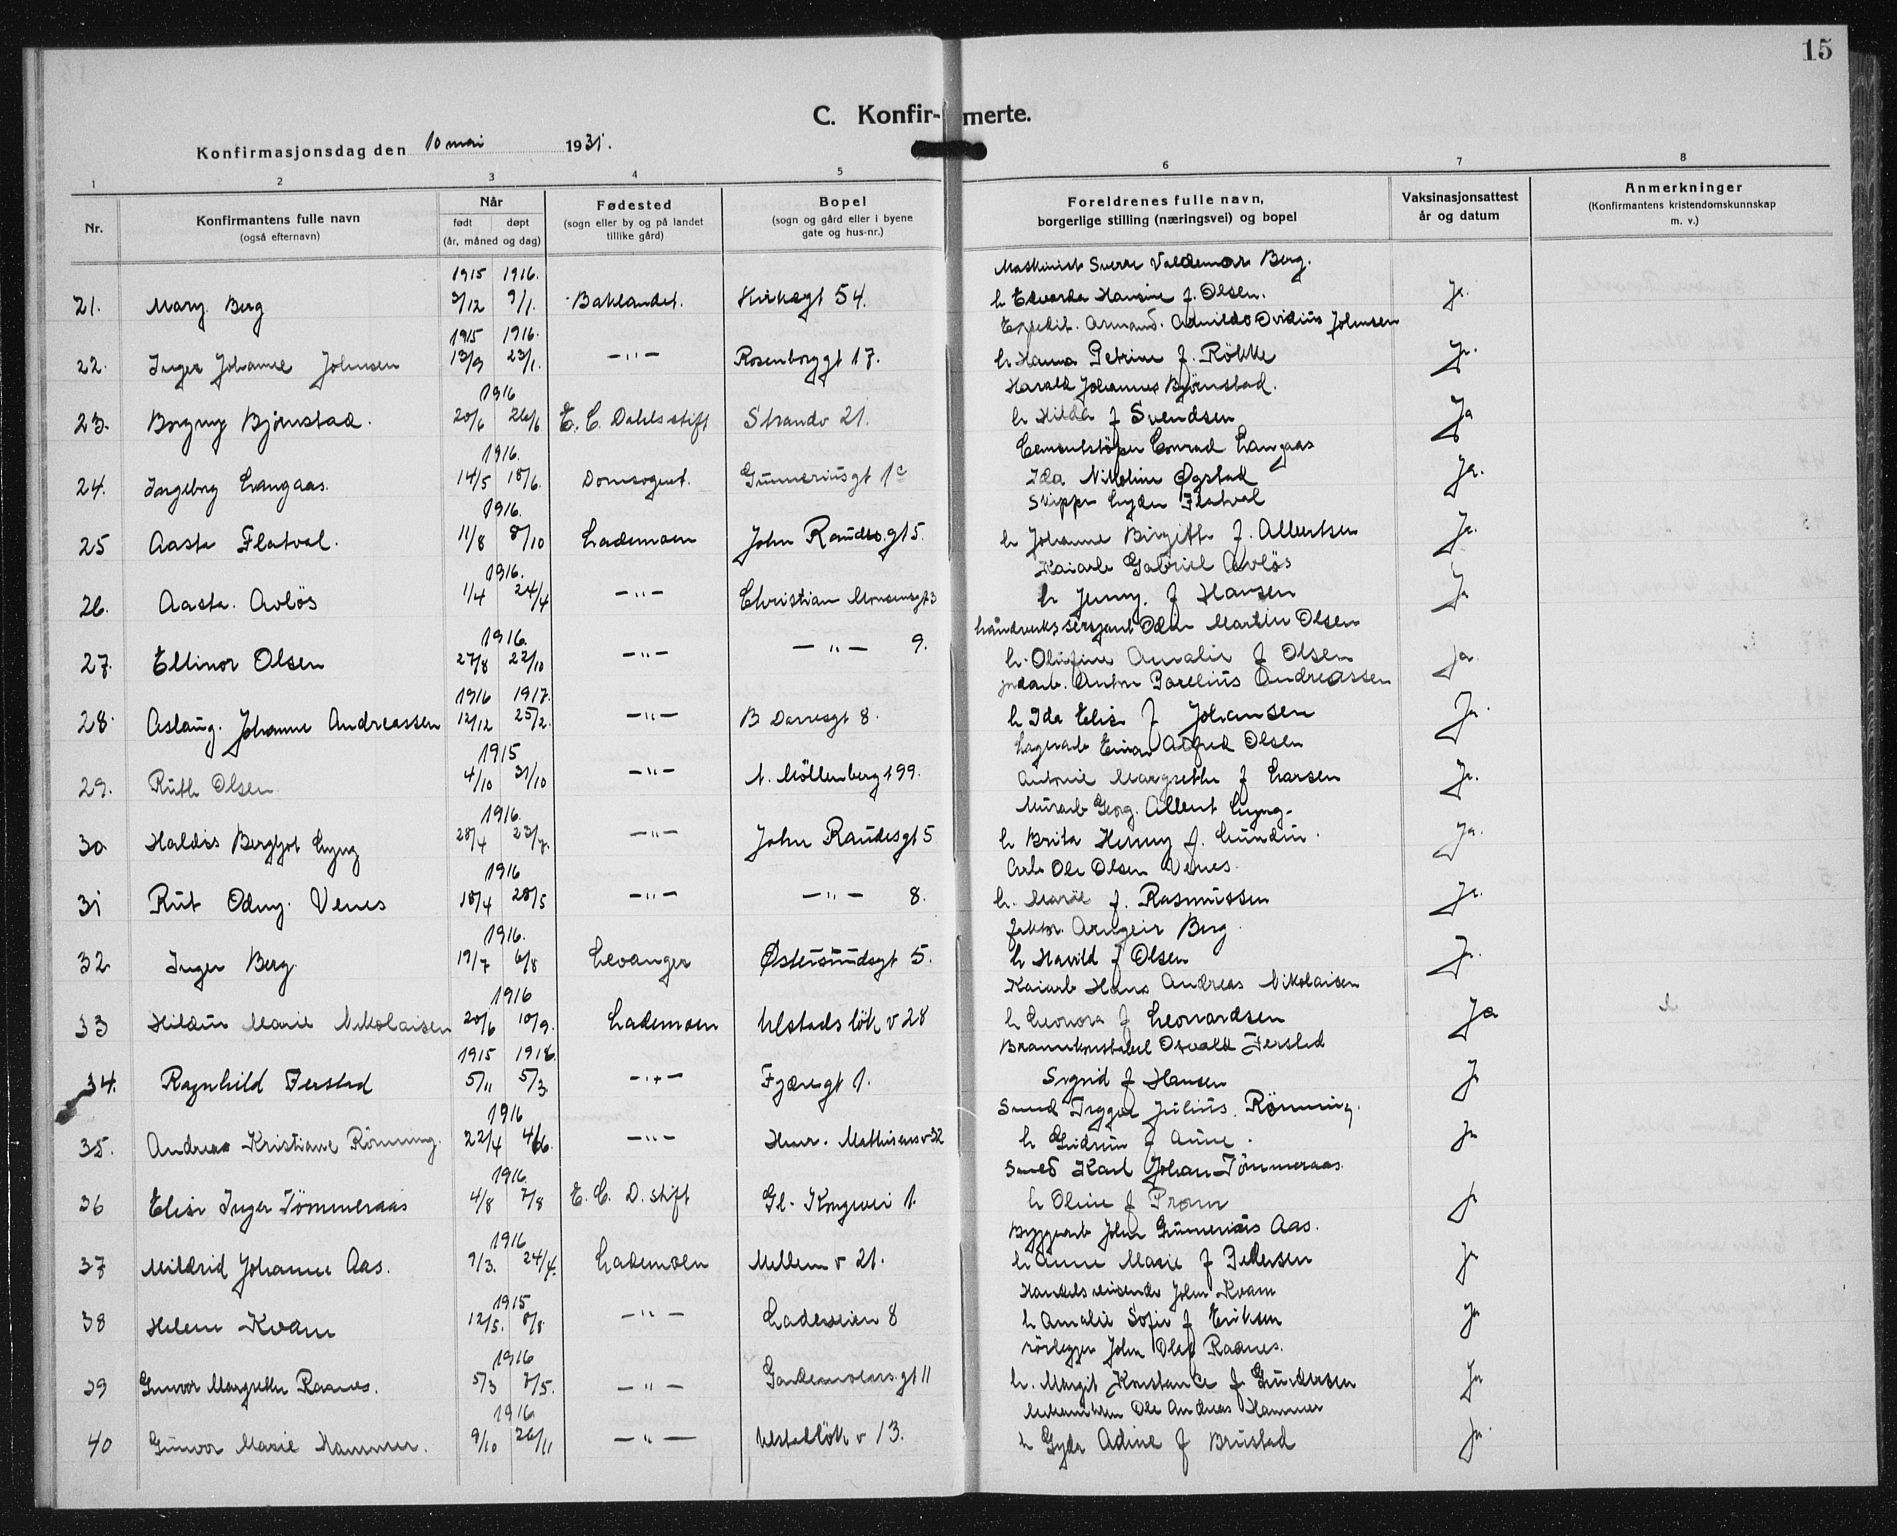 15
C. Konfir-merte.
Konfirmasjonsdag den 10 mai 1931.
1 2 3 4 5 6 7 8
Nr.
Konfirmantens fulle navn
(også efternavn)
Når
født døpt
(år, måned og dag)
Fødested
(sogn eller by og på landet
tillike gård)
Bopel
(sogn og gård eller i byene
gate og hus-nr.)
Foreldrenes fulle navn,
borgerlige stilling (næringsvei) og bopel
Vaksinasjonsattest
år og datum
Anmerkninger
(Konfirmantens kristendomskunnskap
m. v.)
1915 1916. Maskinist Sverre Valdemar Berg.
21. Mary Berg 3/12 9/1. Baklandet. Kirkegt 54. h Edvarda Hansine f. Olsen. Ja.
1915 1916. Arnoldo Ovidius Johnsen
22. Inger Johanne Johnsen 13/9 23/1. —"— Rosenborggt 17. h Hanna Petrine f. Rökke Ja.
1916 Harald Johannes Bjørnstad.
23. Borgny Bjørnstad. 20/6 26/6 E. C. Dahls stift Strandv 21. h Hilda f Svendsen Ja
1916. Cementstöper Conrad Langaas
24. Ingeborg Langaas. 14/5 18/6. Domsognet. Gunneriusgt 1c Ida Nikoline Øgstad Ja.
1916. Skipper Flatval
25 Aasta Flatval. 11/8 8/10 Lademoen John Raudes.gt 5. h Johanne Birgitte f. Albertsen Ja.
1916. Kaiarb Gabriel Avløs
26. Aasta. Avløs 1/4 24/4 —"— Christian Monsensgt 3 h Jenny. f Hansen Ja
1916. Håndverks sersjant Odin Martin Olsen
27. Ellinor Olsen 27/8 22/10 —"— —"— 9. h. Olufine Amalie f Olsen Ja.
1916 1917. Anton Parelius Andreassen
28. Aslaug. Johanne Andreassen 12/12 25/2. —"— B Darresgt 8. h Ida Elise f Johansen Ja.
1915 Lagerarb Einar Alfred Olsen
29. Ruth Olsen 4/10 31/10 —"— N. Möllenberggt 99. Antonie Margrethe f Larsen Ja.
1916. Murarb Georg. Albert Lyng.
30 Haldis Bergljot Lyng 28/4 23/7. —"— John Raudesgt 5 h Brita Henny f. Lundin. Ja.
1916 Arb Ole Olsen Venes.
31 Rut Odny. Venes 18/4 28/5 —"— —"— 8. h. Marie f. Rasmussen Ja.
1916. faktor Arngeir Berg
32. Inger Berg. 19/7 6/8 Levanger Østersundsgt 5. h Havild f Olsen Ja.
1916 Kaiarb Hans Andreas Nikolaisen
33 Hildur Marie Nikolaisen 20/6 10/9. Lademoen Ulstadsløk v 28 h Leonora f Leonardsen Ja
1915 1916. Brannkonstabel Osvald Ferstad
34. Ragnhild Ferstad 5/11 5/3 —"— Fjæregt 1. Sigrid f Hansen Ja
1916 Smed Trygve Julius. Rönning.
35. Andrea Kristiane Rönning. 22/4 4/6. —"— Havr. Mathisensv 32 h Gudrun f Aune. Ja
1916. Smed Karl Johan Tömmeraas.
36 Elise Inger Tömmeraas 4/8 7/8 E. C. D. stift Gl. Kongevei 1. h Oline f Ja
1916 Byggearb John Gunnerius Aas.
37 Mildrid Johanne Aas. 9/3. 24/4. Lademoen Mellemv 21. h Anne Marie f Pedersen Ja
1915 Handelsreisende John Kvam
38 Helene Kvam 12/5. 8/8 —"— Ladeveien 8 h Amalie Sofie f Eriksen Ja
1916 rörlegger John Olaf Raanes.
39 Gunvor Margrethe Raanes. 5/3 7/5. —"— Gardemoensgt 11 h. Margit Konstance f Gundersen Ja
1916 Mekanikker Ole Andreas Hammer
40 Gunvor Marie Hammer. 9/10 26/11 —"— Ulstadløk v 13. h Gyda Adine f Brustad Ja.